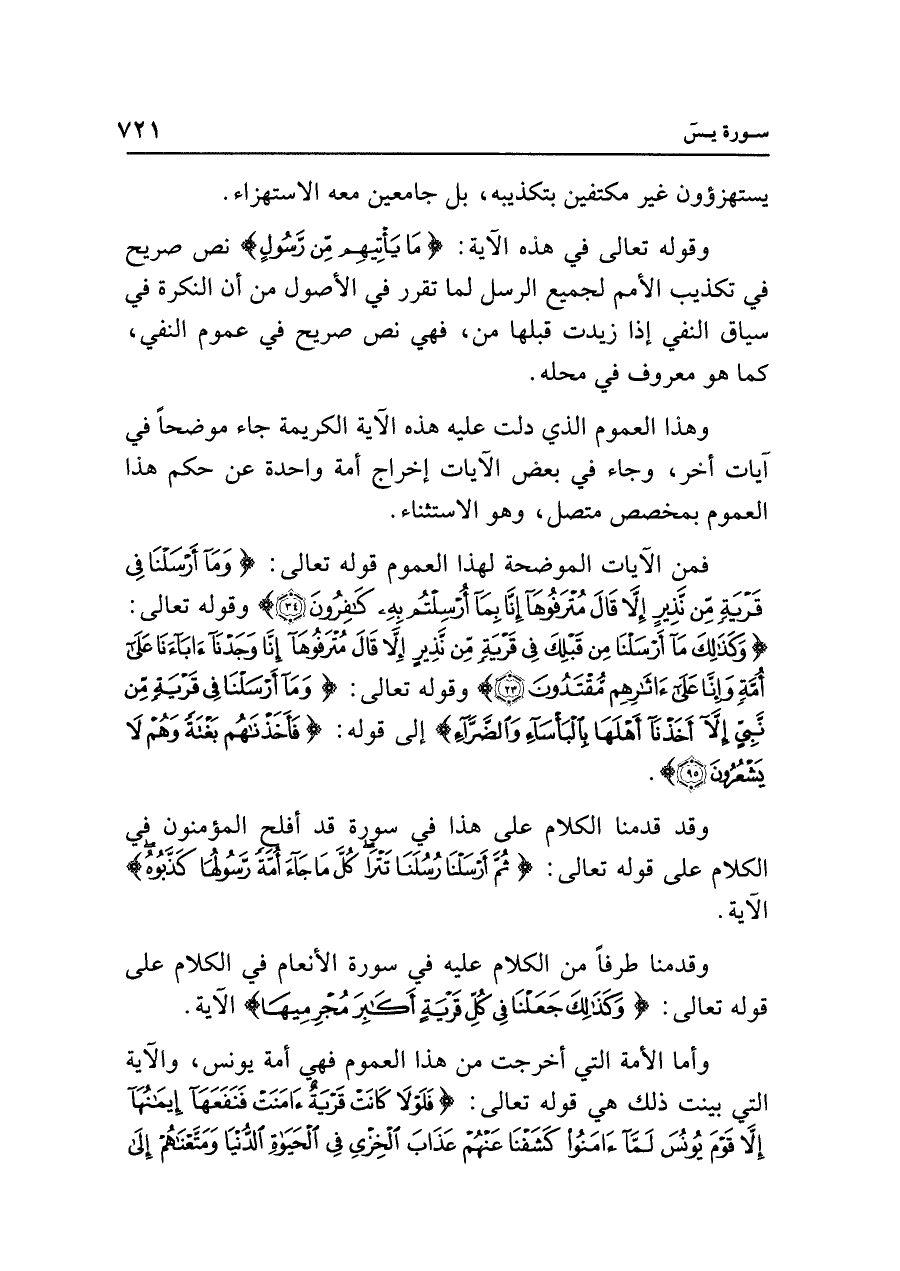 سورة يسَ ٧٢١
يستهزؤون غير مكتفين بتكذيبه، بل جامعين معه الاستهزاء.
وقوله تعالى في هذه الآية: ﴿ مَا يَأْتِيهِم مِّن رَّسُولٍ﴾ نص صريح
في تكذيب الأمم لجميع الرسل لما تقرر في الأصول من أن النكرة في
سياق النفي إذا زيدت قبلها من، فهي نص صريح في عموم النفي،
كما هو معروف في محله.
وهذا العموم الذي دلت عليه هذه الآية الكريمة جاء موضحاً في
آيات أخر، وجاء في بعض الآيات إخراج أمة واحدة عن حكم هذا
العموم بمخصص متصل، وهو الاستثناء.
فمن الآيات الموضحة لهذا العموم قوله تعالى: ﴿ وَمَآ أَرْسَلْنَا فِى
قَرْيَةٍ مِّن نَّذِيرٍ إِلَّا قَالَ مُتْرَفُوهَآ إِنَّا بِمَآ أُرْسِلْتُم بِهِۦ كَٰفِرُونَ ٣٤﴾ وقوله تعالى:
﴿ وَكَذَٰلِكَ مَآ أَرْسَلْنَا مِن قَبْلِكَ فِى قَرْيَةٍ مِّن نَّذِيرٍ إِلَّا قَالَ مُتْرَفُوهَآ إِنَّا وَجَدْنَآ ءَابَآءَنَا عَلَىٰٓ
أُمَّةٍ وَإِنَّا عَلَىٰٓ ءَاثَٰرِهِم مُّقْتَدُونَ ٢٣﴾ وقوله تعالى: ﴿ وَمَآ أَرْسَلْنَا فِى قَرْيَةٍ مِّن
نَّبِىٍّ إِلَّآ أَخَذْنَآ أَهْلَهَا بِالْبَأْسَآءِ وَالضَّرَّآءِ﴾ إلى قوله: ﴿ فَأَخَذْنَٰهُم بَغْتَةً وَهُمْ لَا
يَشْعُرُونَ ٩٥﴾.
وقد قدمنا الكلام على هذا في سورة قد أفلح المؤمنون في
الكلام على قوله تعالى: ﴿ ثُمَّ أَرْسَلْنَا رُسُلَنَا تَتْرَا كُلَّ مَا جَآءَ أُمَّةً رَّسُولُهَا كَذَّبُوهُ﴾
الآية.
وقدمنا طرفاً من الكلام عليه في سورة الأنعام في الكلام على
قوله تعالى: ﴿ وَكَذَٰلِكَ جَعَلْنَا فِى كُلِّ قَرْيَةٍ أَكَٰبِرَ مُجْرِمِيهَا﴾ الآية.
وأما الأمة التي أخرجت من هذا العموم فهي أمة يونس، والآية
التي بينت ذلك هي قوله تعالى: ﴿ فَلَوْلَا كَانَتْ قَرْيَةٌ ءَامَنَتْ فَنَفَعَهَآ إِيمَٰنُهَآ
إِلَّا قَوْمَ يُونُسَ لَمَّآ ءَامَنُوا۟ كَشَفْنَا عَنْهُمْ عَذَابَ الْخِزْىِ فِى الْحَيَوٰةِ الدُّنْيَا وَمَتَّعْنَٰهُمْ إِلَىٰ